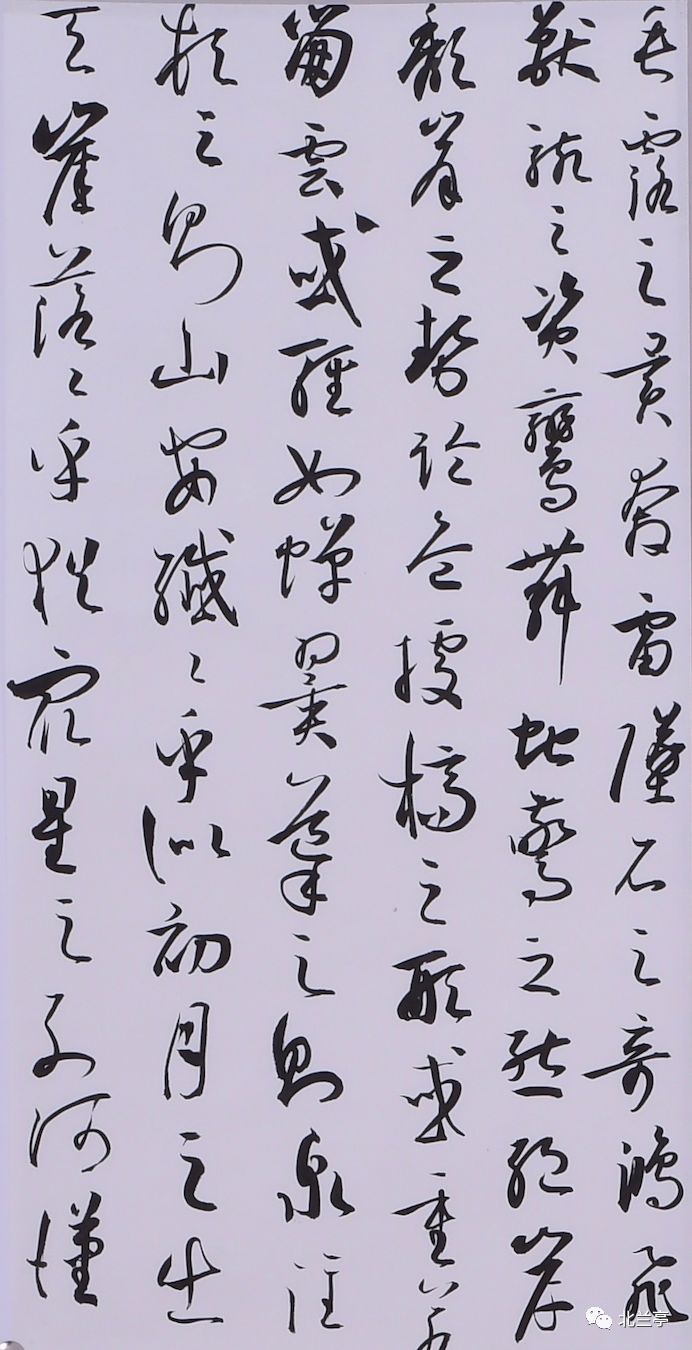 垂露之異奔雷墜石之奇鴻飛
獸駭之資鸞舞蛇驚之態絕岸
頹峯之勢臨危據槁之形或重若
崩雲或輕如蟬翼導之則泉注
頓之則山安纖〻乎似初月之出
天崖落〻乎猶眾星之列河漢
北兰亭